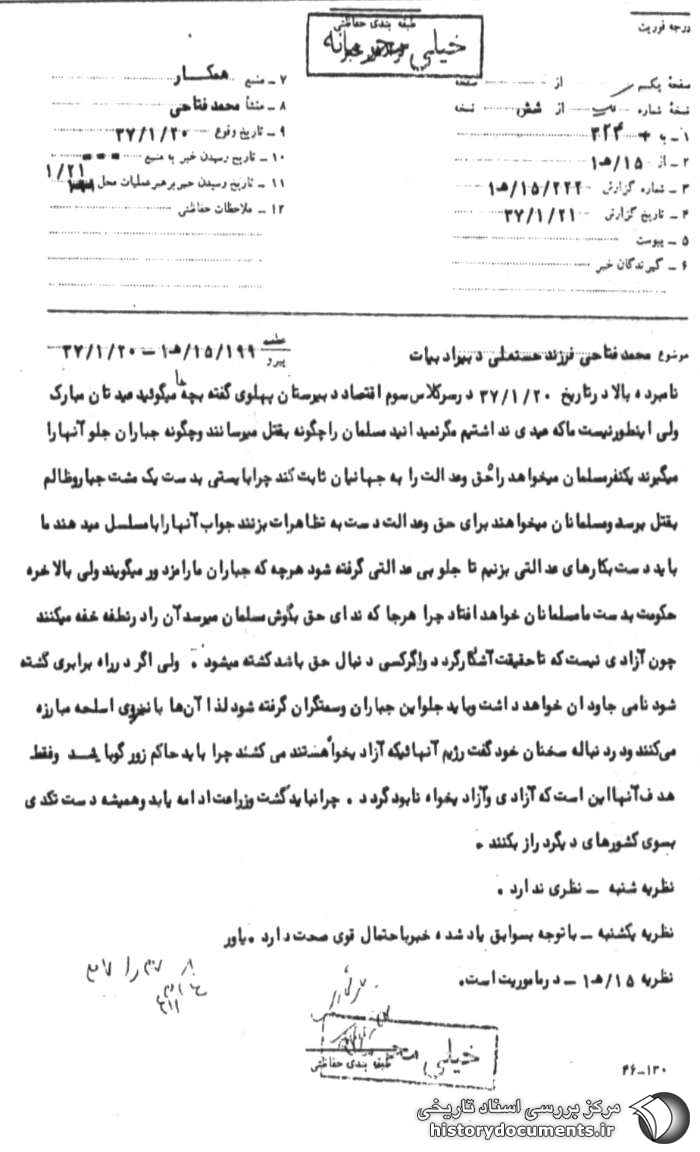 درجه فوریت
طبقه بندی حفاظتی
خیلی محرمانه
صفحه یکم از صفحه
نسخه شماره از شش نسخه
۱ ـ به ۳۲۴
۲ ـ از ۱۵/هـ۱
۳ ـ شماره گزارش ۱۵/۲۲۲/هـ۱
۴ ـ تاریخ گزارش ۳۷/۱/۲۱
۵ ـ پیوست
۶ ـ گیرندگان خبر
۷ ـ منبع همکار
۸ ـ منشأ محمد فتاحی
۹ ـ تاریخ وقوع ۳۷/۱/۲۰
۱۰ ـ تاریخ رسیدن خبر به منبع
۱۱ ـ تاریخ رسیدن خبر برهبر عملیات محل ۱/۲۱
۱۲ ـ ملاحظات حفاظتی
موضوع محمد فتاحی فرزند حسنعلی دبیر ادبیات
پیرو ۱۵/۱۹۹/هـ۱ ـ ۳۷/۱/۲۰
نامبرده بالا در تاریخ ۳۷/۱/۲۰ در سر کلاس سوم اقتصاد دبیرستان پهلوی گفته بچه ها میگوئید عیدتان مبارک
ولی اینطور نیست ما که عیدی نداشتیم مگر نمیدانید مسلمان را چگونه بقتل میرسانند و چگونه جباران جلو آنها را
میگیرند یکنفر مسلمان میخواهد راه حق و عدالت را به جهانیان ثابت کند چرا بایستی بدست یک مشت جبار و ظالم
بقتل برسد و مسلمانان میخواهند برای حق و عدالت دست به تظاهرات بزنند جواب آنها را با مسلسل میدهند ما
باید دست بکارهای عدالتی بزنیم تا جلو بی عدالتی گرفته شود هرچه که جباران ما را مزدور میگویند ولی بالاخره
حکومت بدست ما مسلمانان خواهد افتاد چرا هرجا که ندای حق بگوش مسلمان میرسد آن را در نطفه خفه میکنند
چون آزادی نیست که تا حقیقت آشکار گردد و اگر کسی دنبال حق باشد کشته میشود . ولی اگر در راه برابری کشته
شود نامی جاودان خواهد داشت و باید جلو این جباران و ستمگران گرفته شود لذا آن‌ها با نیروی اسلحه مبارزه
می‌کنند و در دنباله سخنان خود گفت رژیم آنهائیکه آزادیخواه هستند می کشند چرا باید حاکم زورگو باشد و فقط
هدف آنها این است که آزادی و آزادیخواه نابود گردد . چرا نباید کشت و زراعت ادامه یابد و همیشه دست تکدی
بسوی کشورهای دیگر دراز بکنند .
نظریه شنبه ـ نظری ندارد .
نظریه یکشنبه ـ با توجه بسوابق یاد شده خبر باحتمال قوی صحت دارد . یاور
نظریه ۱۵/هـ۱ ـ در ماموریت است.
خیلی
طبقه بندی حفاظتی
۴۶-۱۳۰
مرکز بررسی اسناد تاریخی
historydocuments.ir